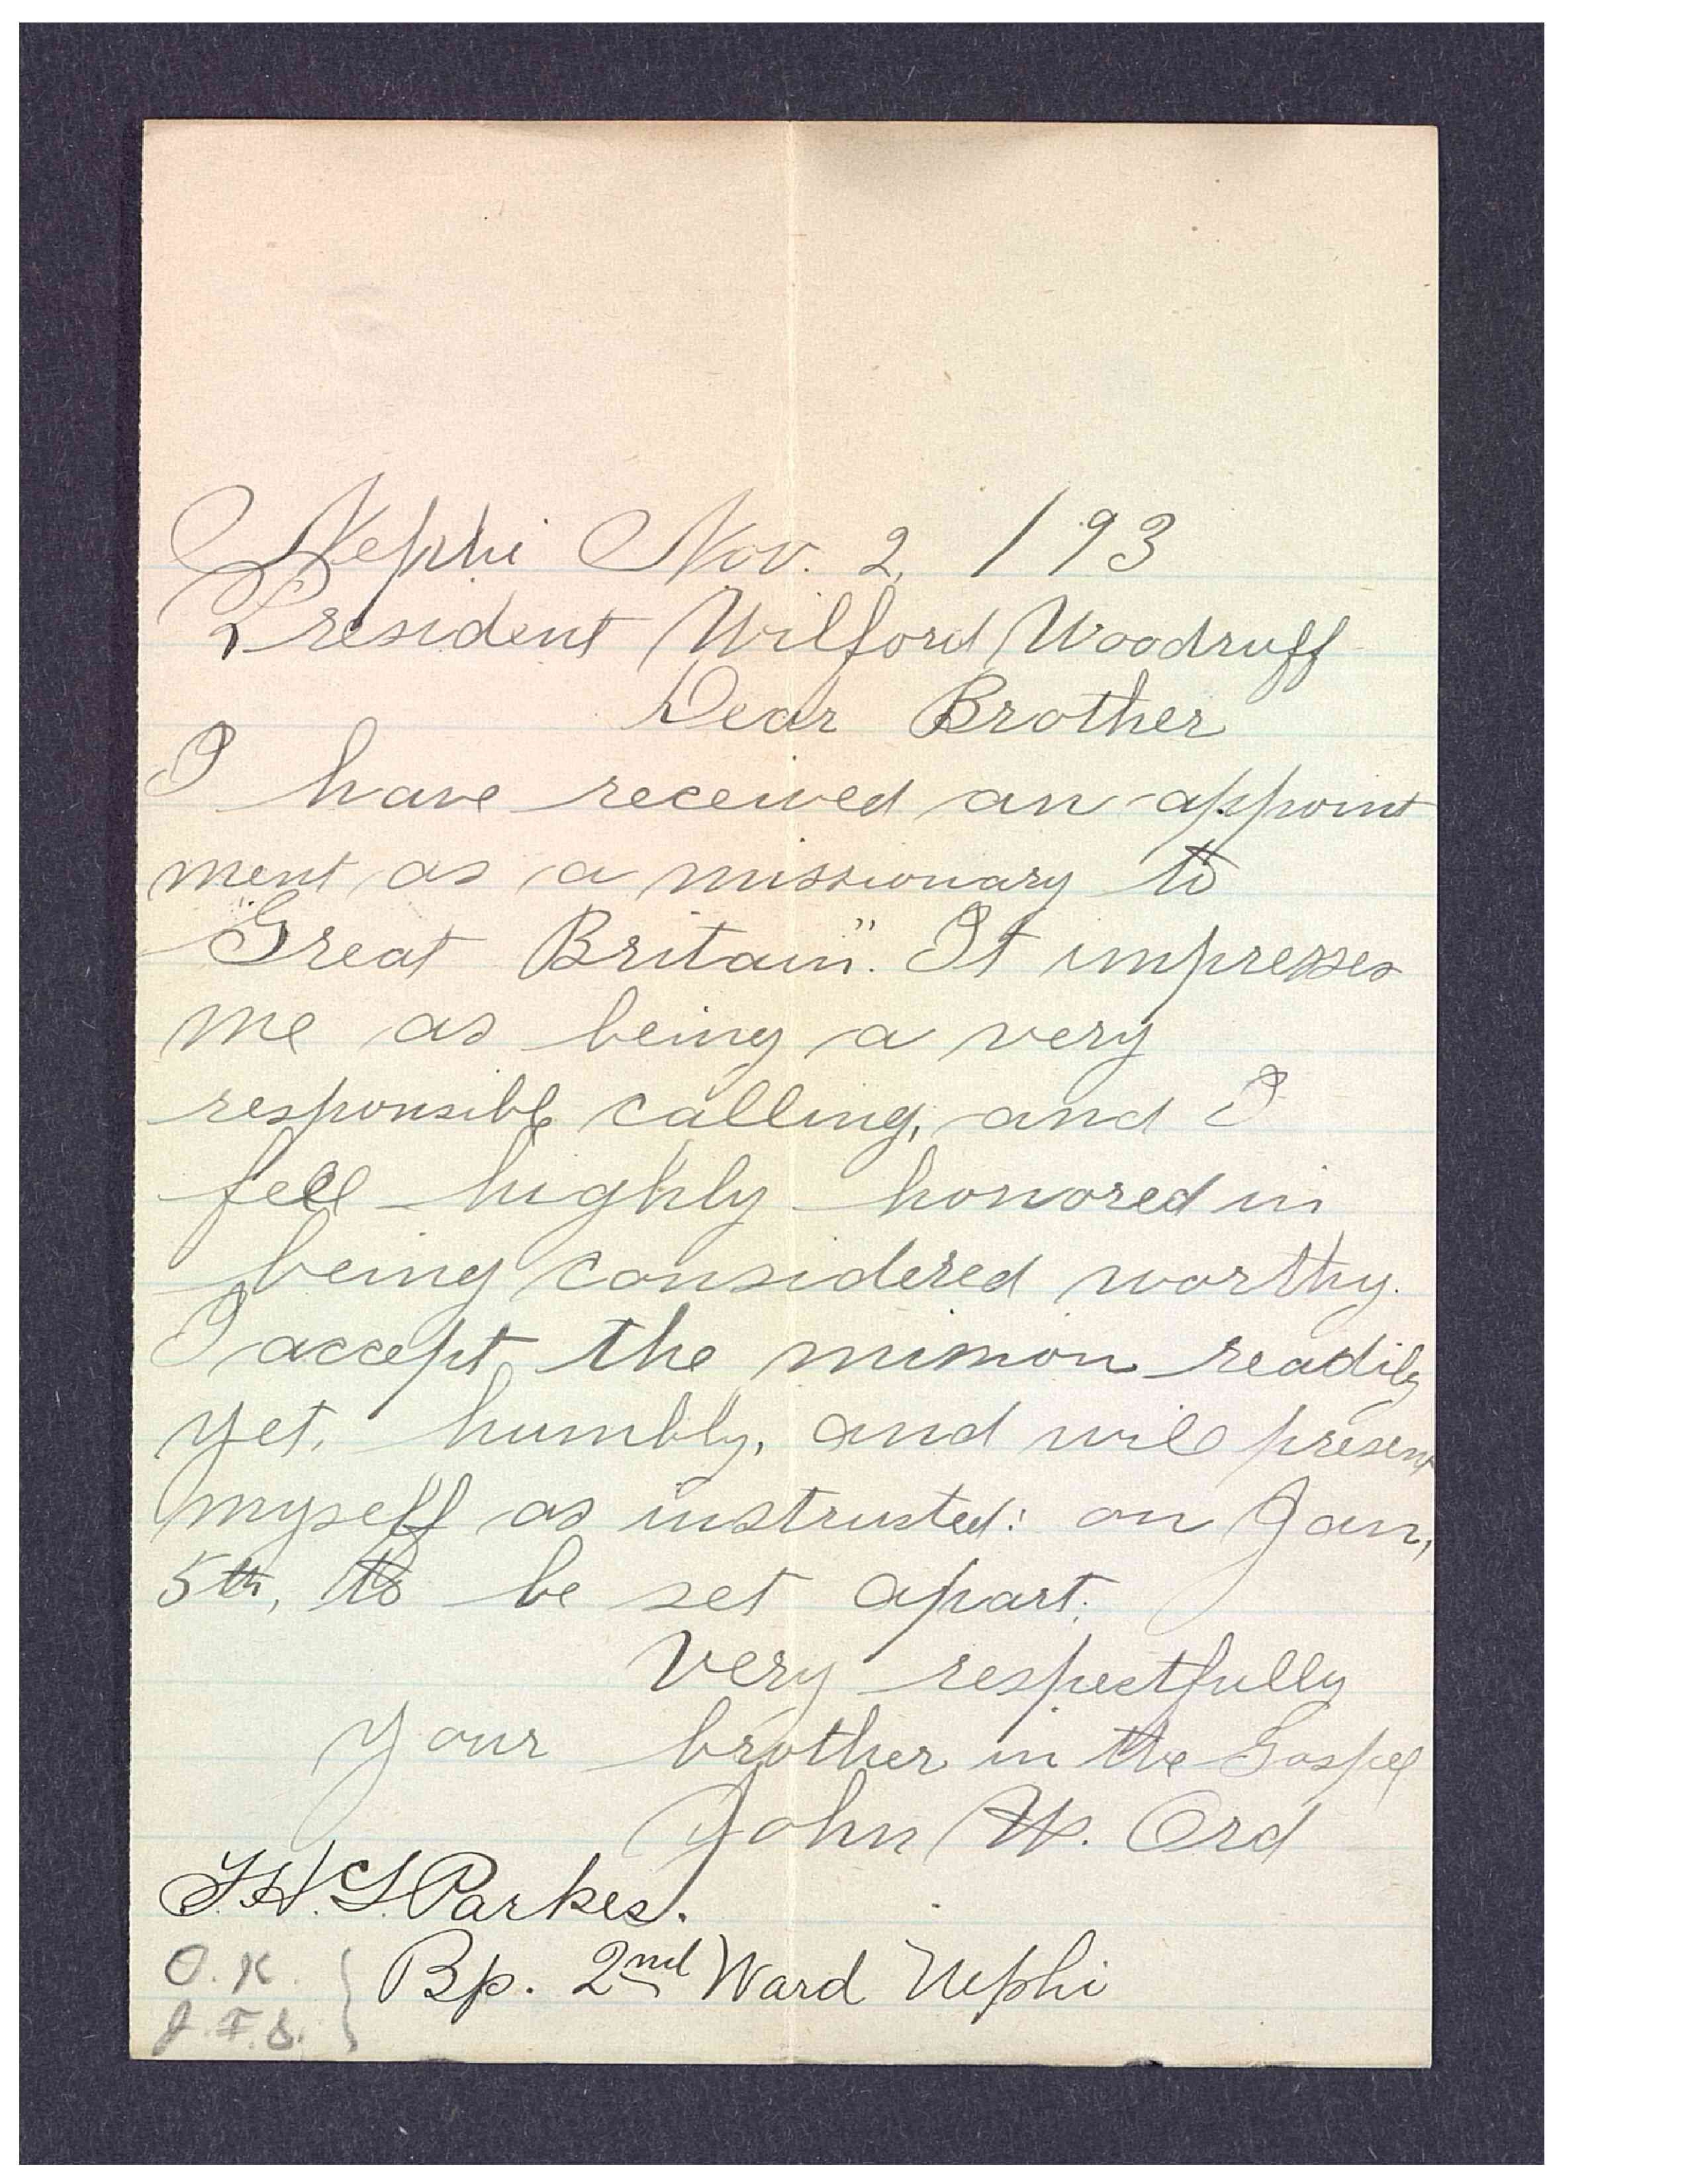 Nephi Nov. 2, /93
President Wilford Woodruff
Dear Brother
I have received an appoint
ment as a missionary to
"Great Britain". It impresses
me as being a very
responsible calling, and I
feel highly honored in
being considered worthy.
I accept the mission readily
yet, humbly, and will present
myself as instructed: on Jan,
5th, to be set apart.
Very respectfully
Your brother in the Gospel
John W. Ord
T.H.G. Parkes.
Bp. 2nd Ward Nephi
O.K.
J.F.S.